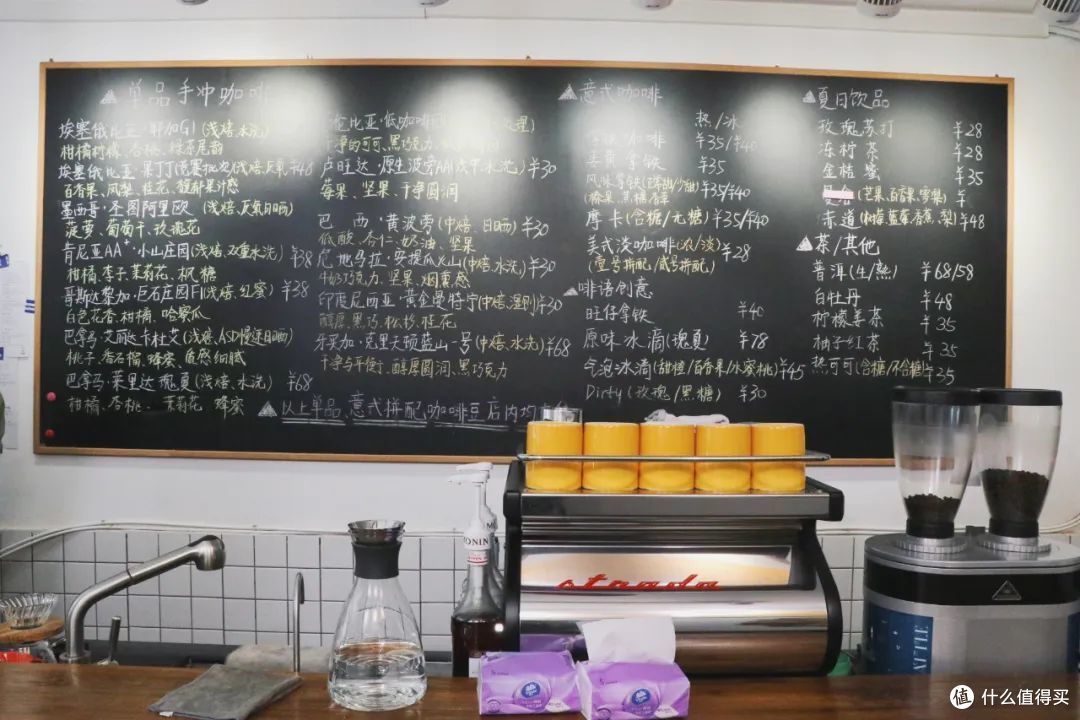 单品手冲咖啡
埃塞俄比亚·耶加G1(浅焙、水洗)
柑橘柠檬、杏桃、绿茶尾韵
埃塞俄比亚·果丁丁 ¥48
百香果、凤梨、桂花、
墨西哥·圣图阿里欧(浅焙、厌氧日晒)
菠萝、葡萄干、玫瑰花
肯尼亚AA+·小山庄园(浅焙、双重水洗) ¥38
柑橘、李子、茉莉花、枫糖
哥斯达黎加·巨石庄园F1(浅焙、红蜜) ¥38
白色花香、柑橘、哈密瓜
巴拿马·艾丽达卡杜艾(浅焙、ASD慢速日晒)
桃子、香石榴、蜂蜜、质感细腻
巴拿马·莱里达瑰夏(浅焙、水洗) ¥68
柑橘、杏桃、茉莉花、蜂蜜
干净的可可、黑巧克力、
卢旺达·原生波旁AA(水洗) ¥30
莓果、坚果、干净圆润
巴西·黄波旁(中焙、日晒) ¥30
低酸、杏仁、奶油、坚果
危地马拉·安提瓜火山(中焙、水洗) ¥30
牛奶巧克力、坚果、烟熏感
印度尼西亚·黄金曼特宁(中焙、湿刨) ¥30
醇厚、黑巧、松杉、桂花
牙买加·克里夫顿蓝山一号(中焙、水洗) ¥68
干净与平衡、醇厚圆润、黑巧克力
以上单品、意式拼配咖啡豆店内均
意式咖啡
热/冰
咖啡 ¥35/¥40
拿铁 ¥35
风味拿铁 ¥35/¥40
(榛果、焦糖、香草)
摩卡(含糖/无糖) ¥35/¥40
美式淡咖啡(浓/淡) ¥28
(壹号拼配/贰号拼配)
啡语创意
旺仔拿铁 ¥40
原味冰滴(瑰夏) ¥78
气泡冰滴(甜橙/百香果/水蜜桃) ¥45
Dirty(玫瑰/黑糖) ¥30
夏日饮品
玫瑰苏打 ¥28
冻柠茶 ¥28
金桔蜜 ¥35
(芒果、百香果、雪梨) ¥
赤道(柠檬、蓝莓、香蕉、梨) ¥48
茶/其他
普洱(生/熟) ¥68/58
白牡丹 ¥48
柠檬姜茶 ¥35
柚子红茶 ¥35
热可可(含糖/不含糖) ¥35
MONIN
strada
值 什么值得买